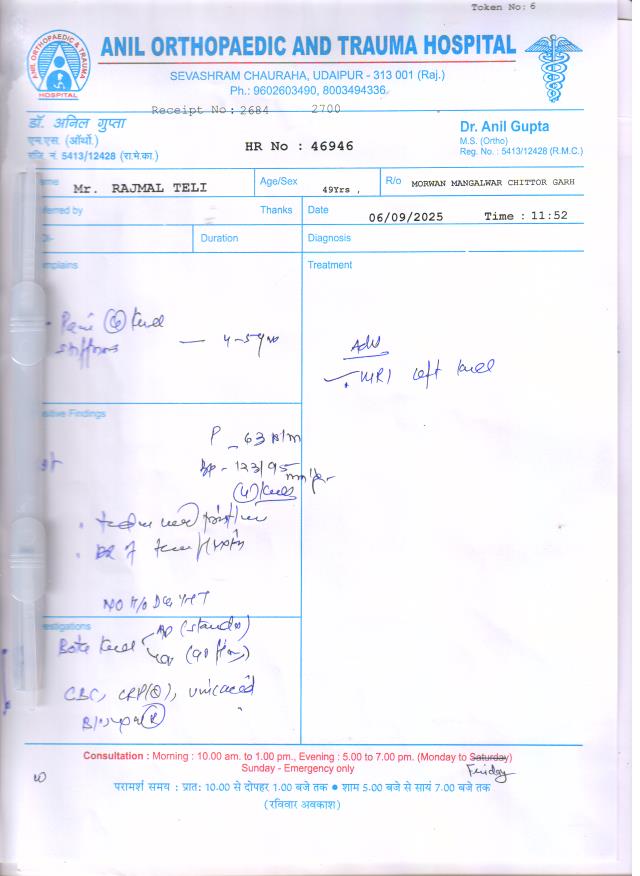 Token No: 6
ANIL ORTHOPAEDIC & TRAUMA HOSPITAL
ANIL ORTHOPAEDIC AND TRAUMA HOSPITAL
SEVASHRAM CHAURAHA, UDAIPUR - 313 001 (Raj.)
Ph.: 9602603490, 8003494336
Receipt No: 2684 2700
डॉ. अनिल गुप्ता
एम.एस. (ऑर्थो.)
रजि. नं. 5413/12428 (रा.मे.का.)
HR No : 46946
Dr. Anil Gupta
M.S. (Ortho)
Reg. No. : 5413/12428 (R.M.C.)
Mr. RAJMAL TELI
Age/Sex 49Yrs ,
R/o MORWAN MANGALWAR CHITTOR GARH
ferred by Thanks
Date 06/09/2025 Time : 11:52
Duration
Diagnosis
mplains
Treatment
stiffness
Adv
MRI Left knee
sitive Findings
P - 63 B/m
Bp - 123/95 mm/
NO H/O
estigations
Both knee AP (standing)
CBC, CRP(Q),
Consultation : Morning : 10.00 am. to 1.00 pm., Evening : 5.00 to 7.00 pm. (Monday to Saturday)
Friday
Sunday - Emergency only
परामर्श समय : प्रात: 10.00 से दोपहर 1.00 बजे तक ● शाम 5.00 बजे से सायं 7.00 बजे तक
(रविवार अवकाश)